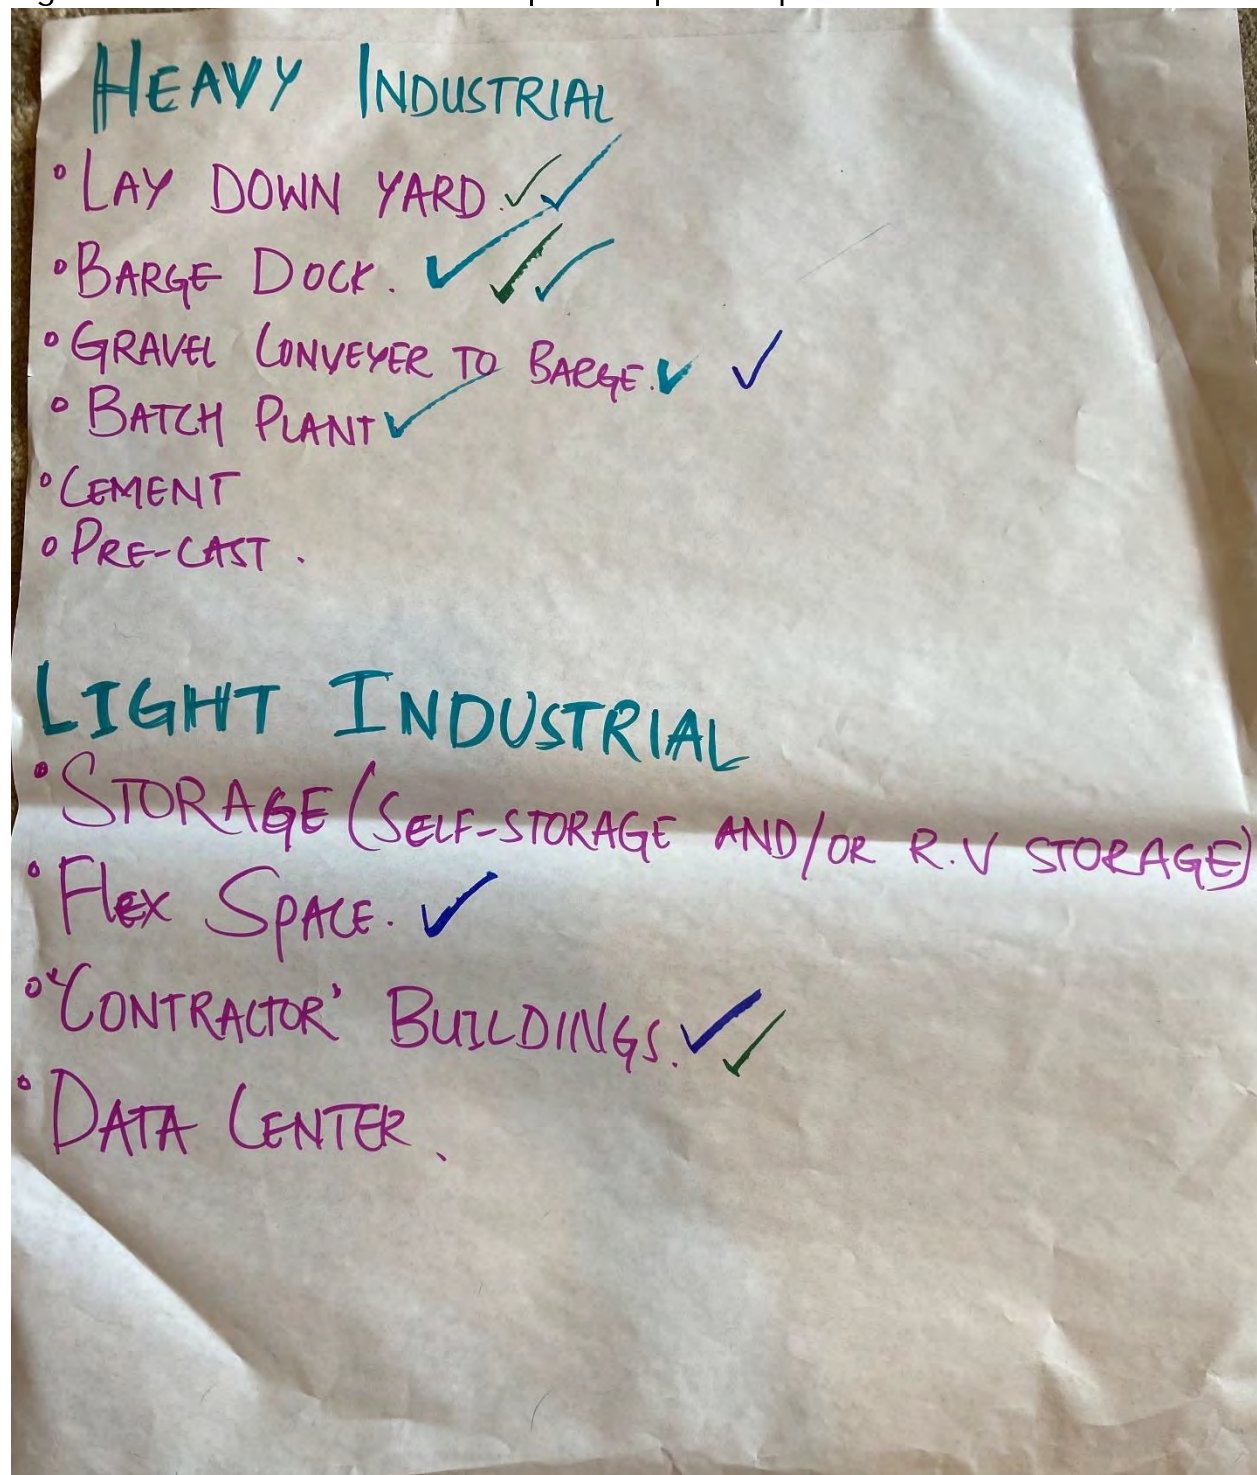 HEAVY INDUSTRIAL
• LAY DOWN YARD. ✓✓
• BARGE DOCK. ✓✓✓
• GRAVEL CONVEYER TO BARGE. ✓ ✓
• BATCH PLANT ✓
• CEMENT
• PRE-CAST.
LIGHT INDUSTRIAL
• STORAGE (SELF-STORAGE AND/OR R.V STORAGE)
• Flex SPACE. ✓
• "CONTRACTOR' BUILDINGS. ✓✓
• DATA CENTER.